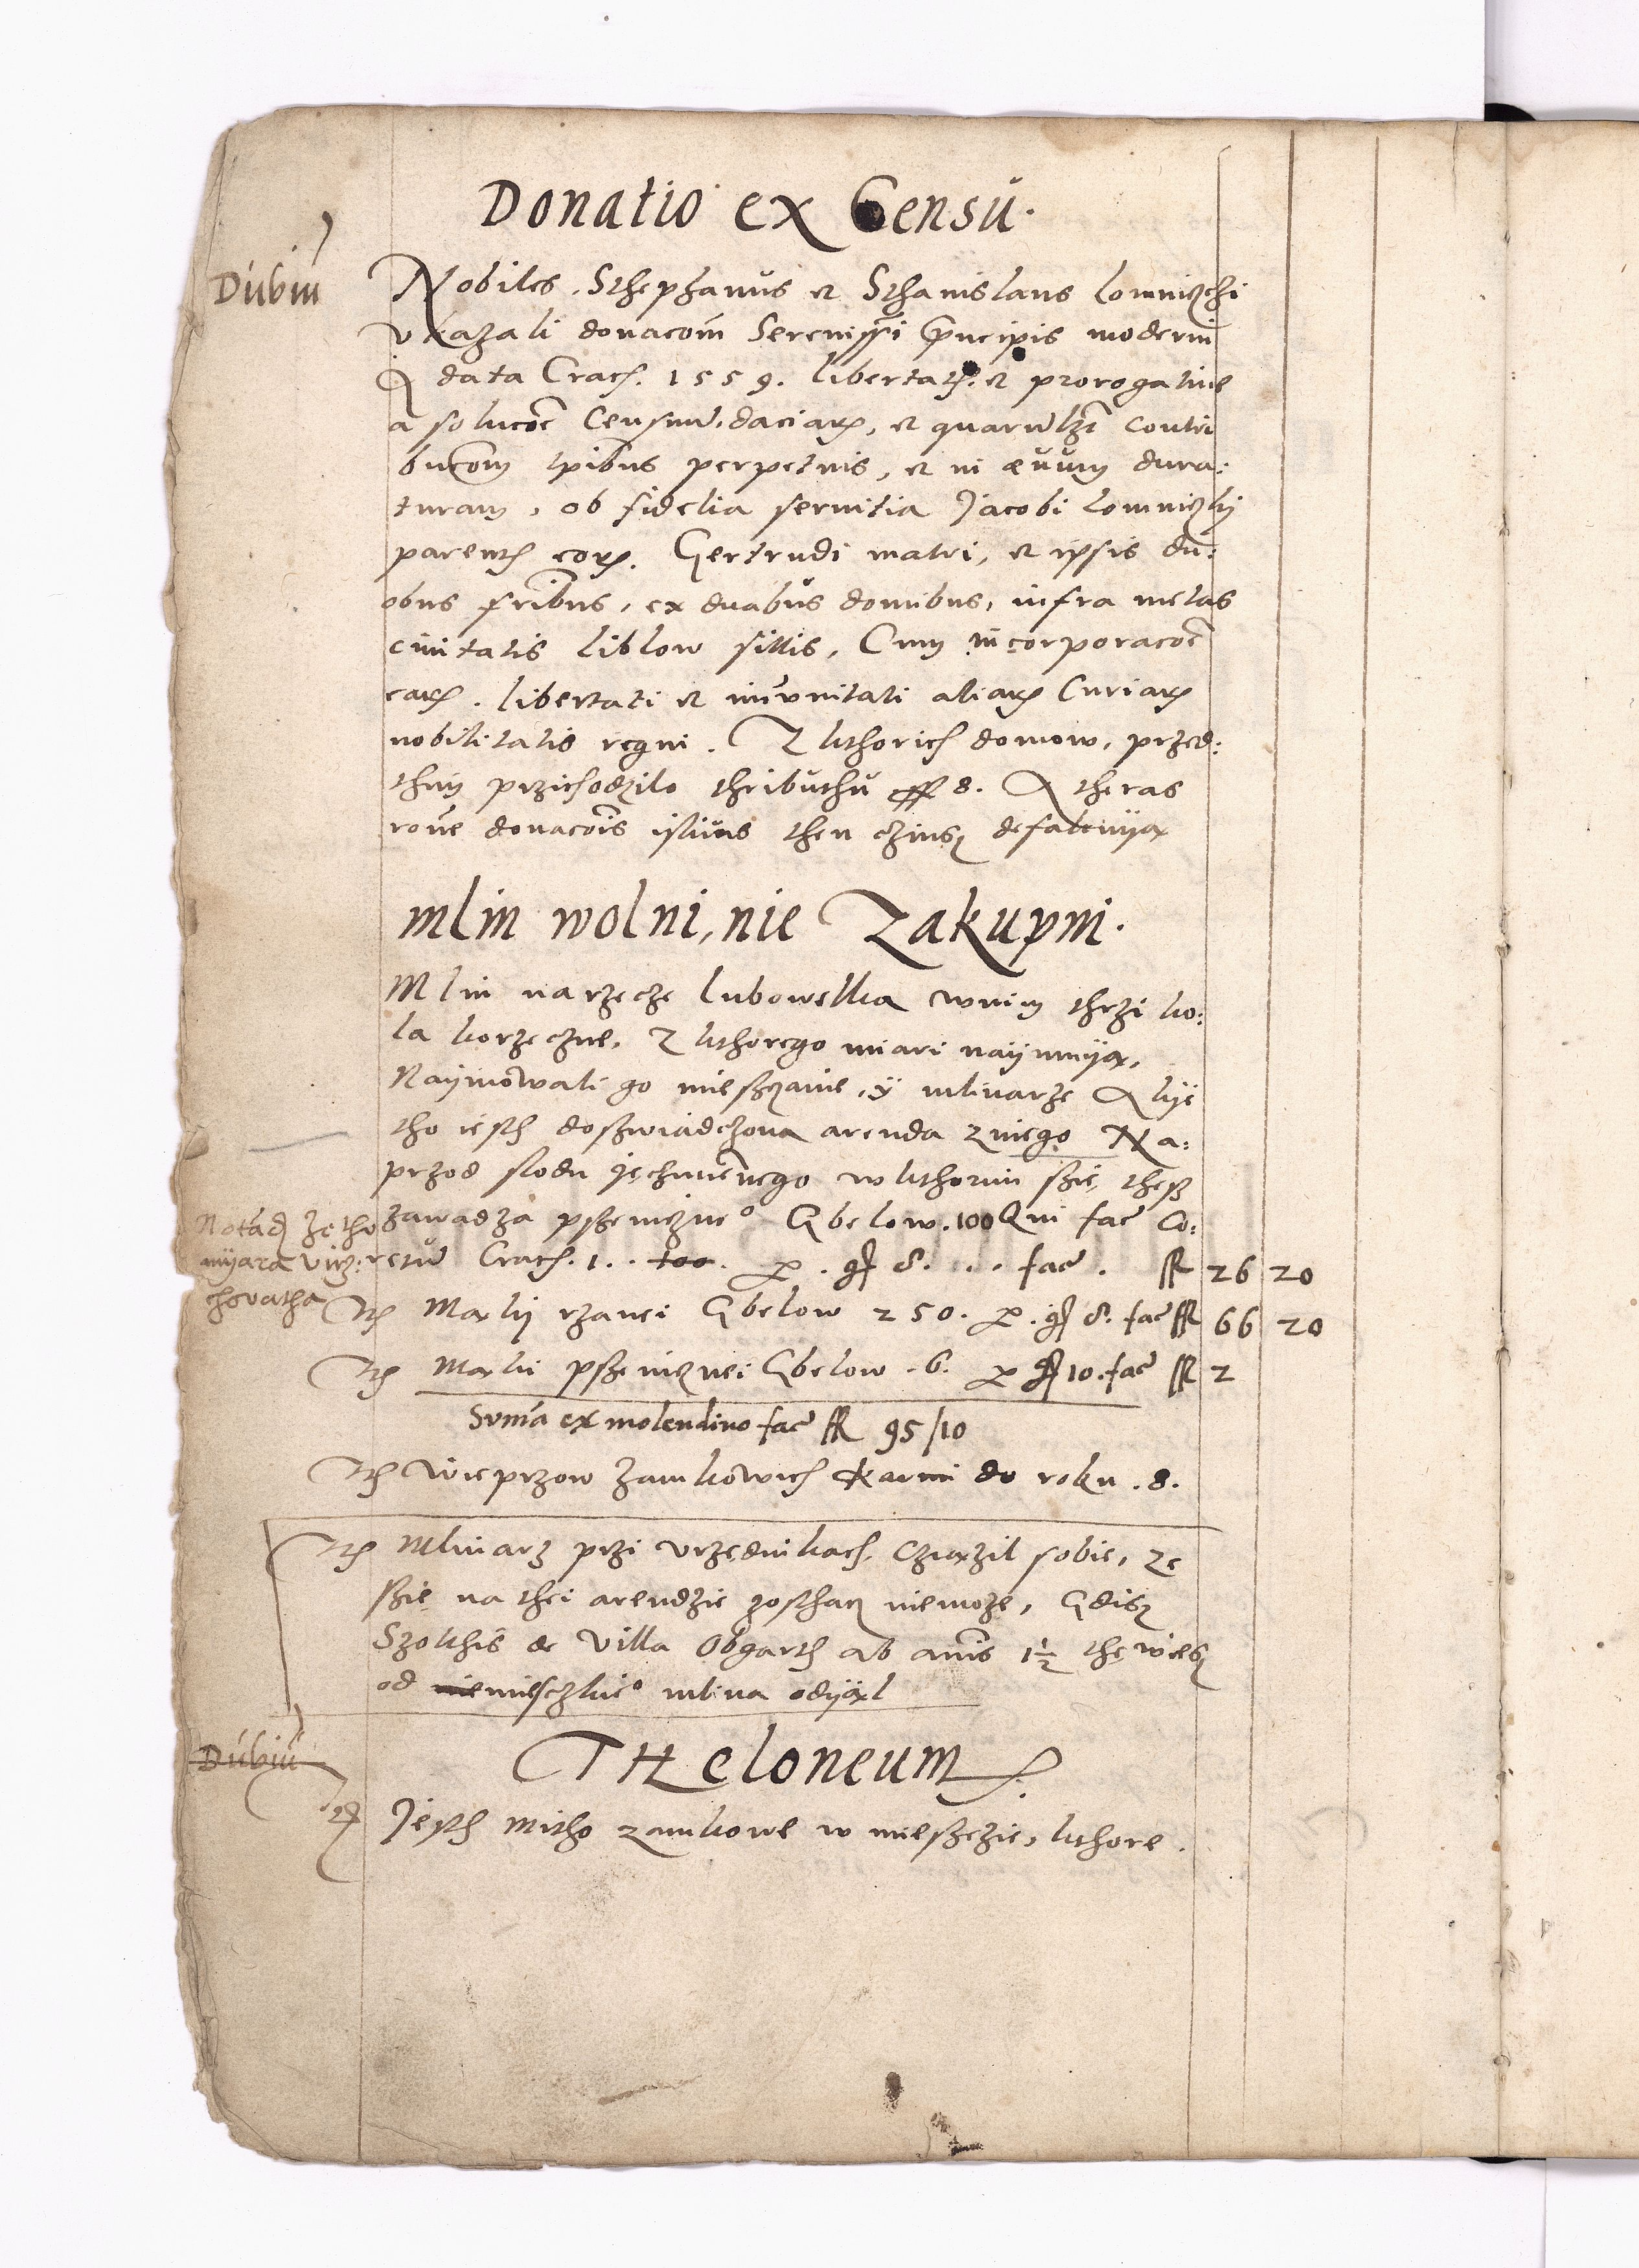 Donatio ex Censu.
Dubiu
Nobiles. Sthephanus et Sthanislaus Lomniczhi
vkazali donacom Serenissi Principis moderni
data Crach. 1559. libertath. et prorogatiue
a solucoe Censuu, daciarx, et quarulzt contri
bucom tpibus perpetuis, et in ævum dura:
turam, ob fidelia seruitia Jacobi Lomniczky
parenth eorx. Gertrudi matri, et ipsis du:
obus fribus, ex duabus domibus, infra metas
ciuitatis Liblow sittis, Cum incorporacoe
earx. libertati et imunitati aliarx Curiarx
nobilitatis regni. Z kthorich domow, przed:
thim przichodzilo thributhu ff 8. A theras
roue donacois istius then czinsz defalcuiya
mlin wolni, nie Zakupni.
Mlin narzecze Lubowelka wnim thrzi ko:
la korzeczne, Z kthorego miari naymuya,
Naymowali go mieszczanie, y mlinarze A kye
tho iesth doszwiadczona arenda zniego Na:
przod slodu jęchmiennego wkthorim szie thesz
zawadza pszeniczneo Gbelow. 100 Qui fac Co:
retu Crach. 1 . . too. per . gr 8. . . . fac . fl 26 20
Notad ze tho
myara vicz:
chovatha
Ith Maky rzanei Gbelow 250. per . gr 8. fac fl 66 20
Ith Maki pszenicznei Gbelow . 6. per gr 10. fac fl 2
Suma ex molendino fac fl 95/10
Ith Wieprzow Zamkowich karmi do roku . 8.
Ith Mlinarz przi vrzędnikach. Cziazil sobie, ze
szie na thei arendzie zosthacz niemoże, Gdisz
Szolthis de Villa Obgarth ab annis 1½ thę wiesz
od miesczkieo mlina odyal
Dubiu
THeloneum
Jesth Mitho zamkowe w miesczie, kthore.